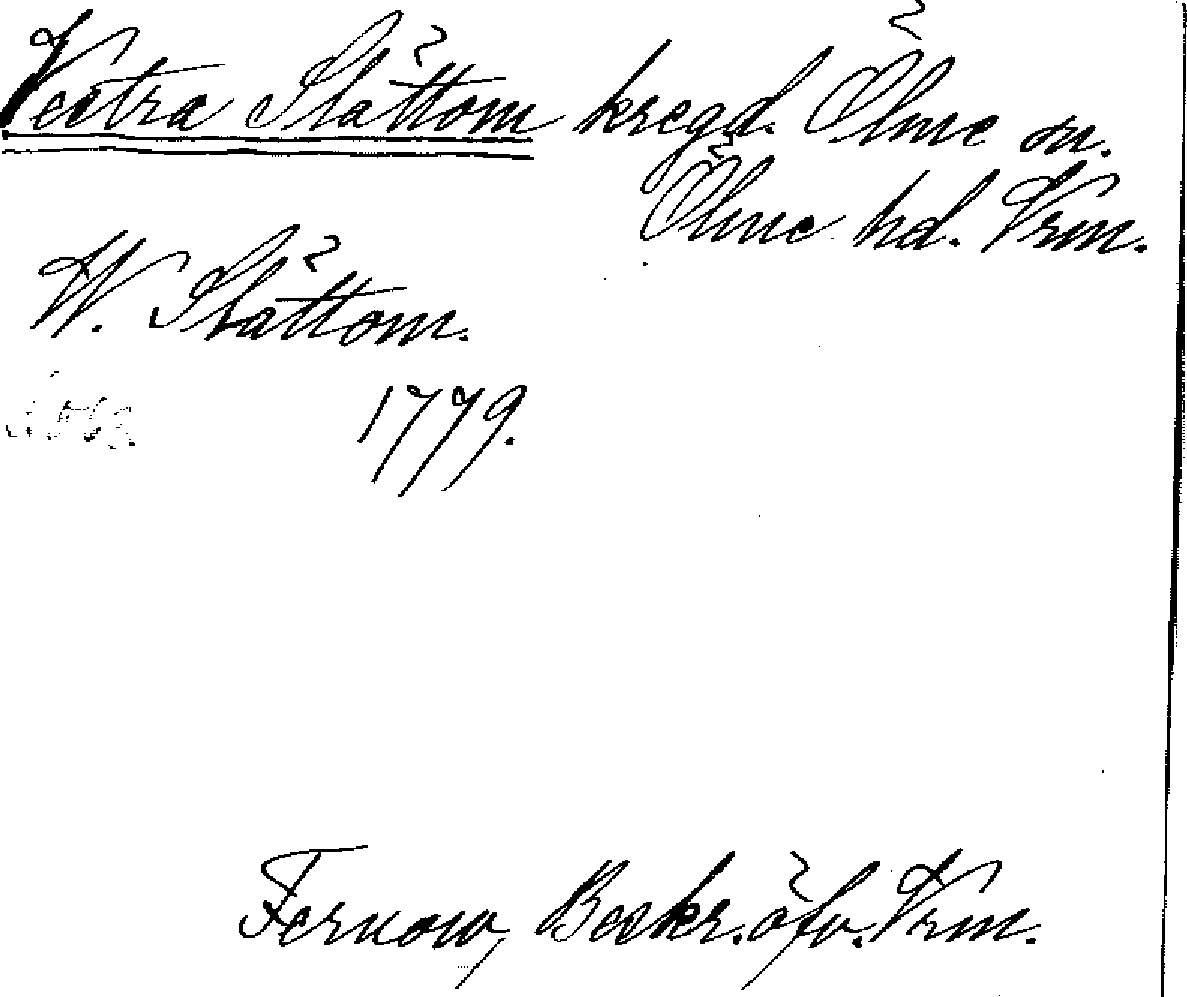 Vestra Slättom kregd. Ölme sn.
Ölme hd. Vrm.
W. Slättom.
1779.
Fernow, Beskr. öfv. Vrm.